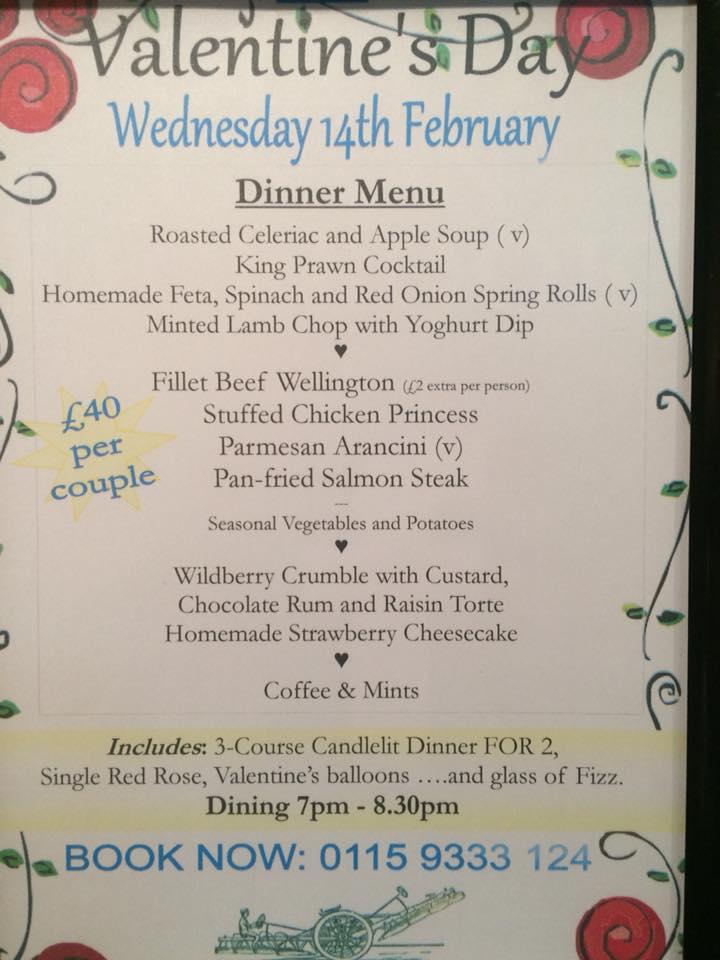 Valentine's Day
Wednesday 14th February
Dinner Menu
Roasted Celeriac and Apple Soup ( v)
King Prawn Cocktail
Homemade Feta, Spinach and Red Onion Spring Rolls ( v)
Minted Lamb Chop with Yoghurt Dip
♥
Fillet Beef Wellington (£2 extra per person)
Stuffed Chicken Princess
Parmesan Arancini (v)
Pan-fried Salmon Steak
---
Seasonal Vegetables and Potatoes
♥
Wildberry Crumble with Custard,
Chocolate Rum and Raisin Torte
Homemade Strawberry Cheesecake
♥
Coffee & Mints
£40
per
couple
Includes: 3-Course Candlelit Dinner FOR 2,
Single Red Rose, Valentine's balloons ….and glass of Fizz.
Dining 7pm - 8.30pm
BOOK NOW: 0115 9333 124